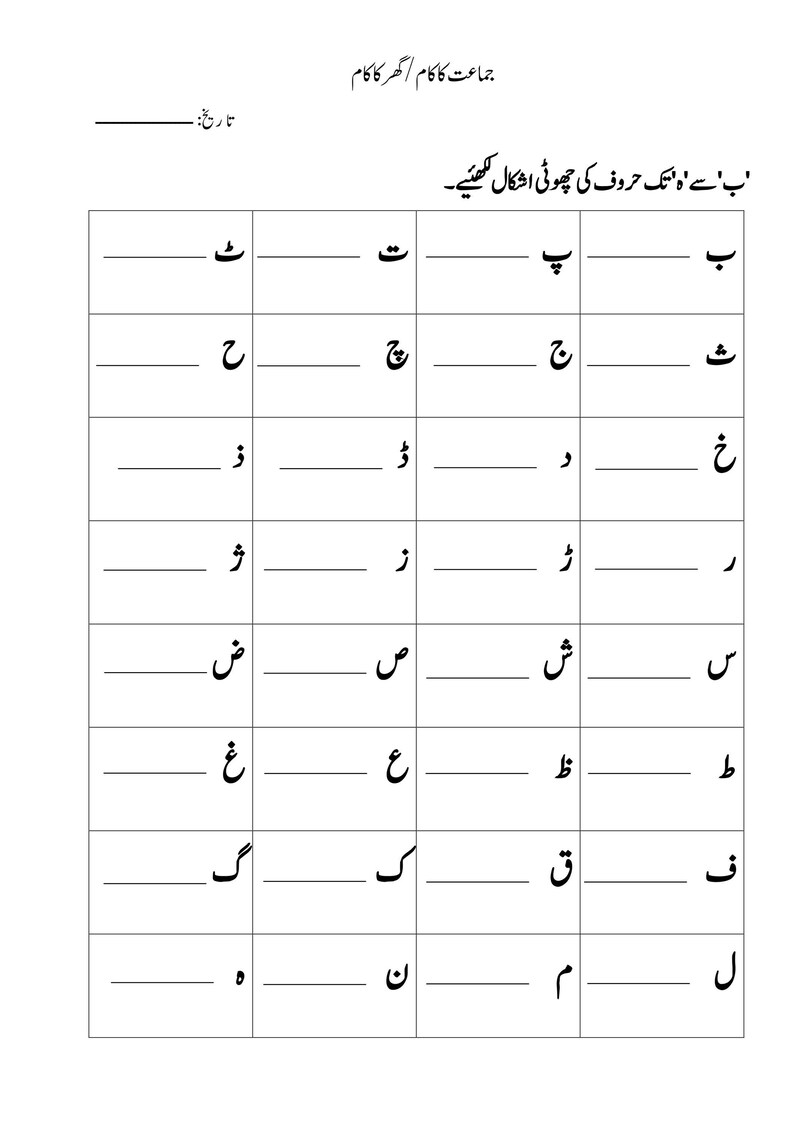 جماعت کا کام/گھر کا کام
تاریخ: ____________
'ب' سے 'ہ' تک حروف کی چھوٹی اشکال لکھئیے۔
ب ____________ پ ____________ ت ____________ ٹ ____________
ث ____________ ج ____________ چ ____________ ح ____________
خ ____________ د ____________ ڈ ____________ ذ ____________
ر ____________ ڑ ____________ ز ____________ ژ ____________
س ____________ ش ____________ ص ____________ ض ____________
ط ____________ ظ ____________ ع ____________ غ ____________
ف ____________ ق ____________ ک ____________ گ ____________
ل ____________ م ____________ ن ____________ ہ ____________